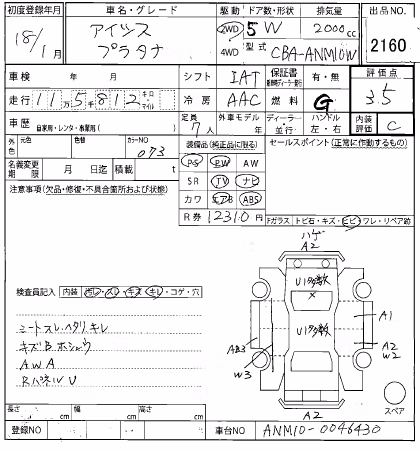 初度登録年月 車名・グレード 駆動 ドア数・形状 排気量 出品NO.
18年 1月 アイシス プラタナ 2WD 4WD 5W 2000cc 2160
型式 CBA-ANM10W
車検 年 月 シフト IAT 保証書 有・無 評価点
走行 11万5千812 キロ・マイル 冷房 AAC 燃料 G 3.5
車歴 自家用・レンタ・事業用( ) 定員 7人 外車モデル 年 ディーラー・並行 ハンドル 左・右 内装評価 C
外色 元色 色替 カラーNO 073 装備品(純正品に限る) セールスポイント(正常に作動するもの)
PS PW AW
名義変更期限 月 日迄 積載 t SR TV ナビ
注意事項(欠品・修復・不具合箇所および状態) カワ エアB ABS
R券 12310円 Fガラス トビ石・キズ・ヒビ・ワレ・リペア跡
ハゲ
A2
U1多数
X
U1多数
A1
A2
W2
AB3
W3
A2
スペア
検査員記入 内装 汚レ・スレ・キズ・キレ・コゲ・穴
シートスレヘタリキレ
AWA
長さ cm 幅 cm 高さ cm
登録NO 車台NO ANM10-0046430